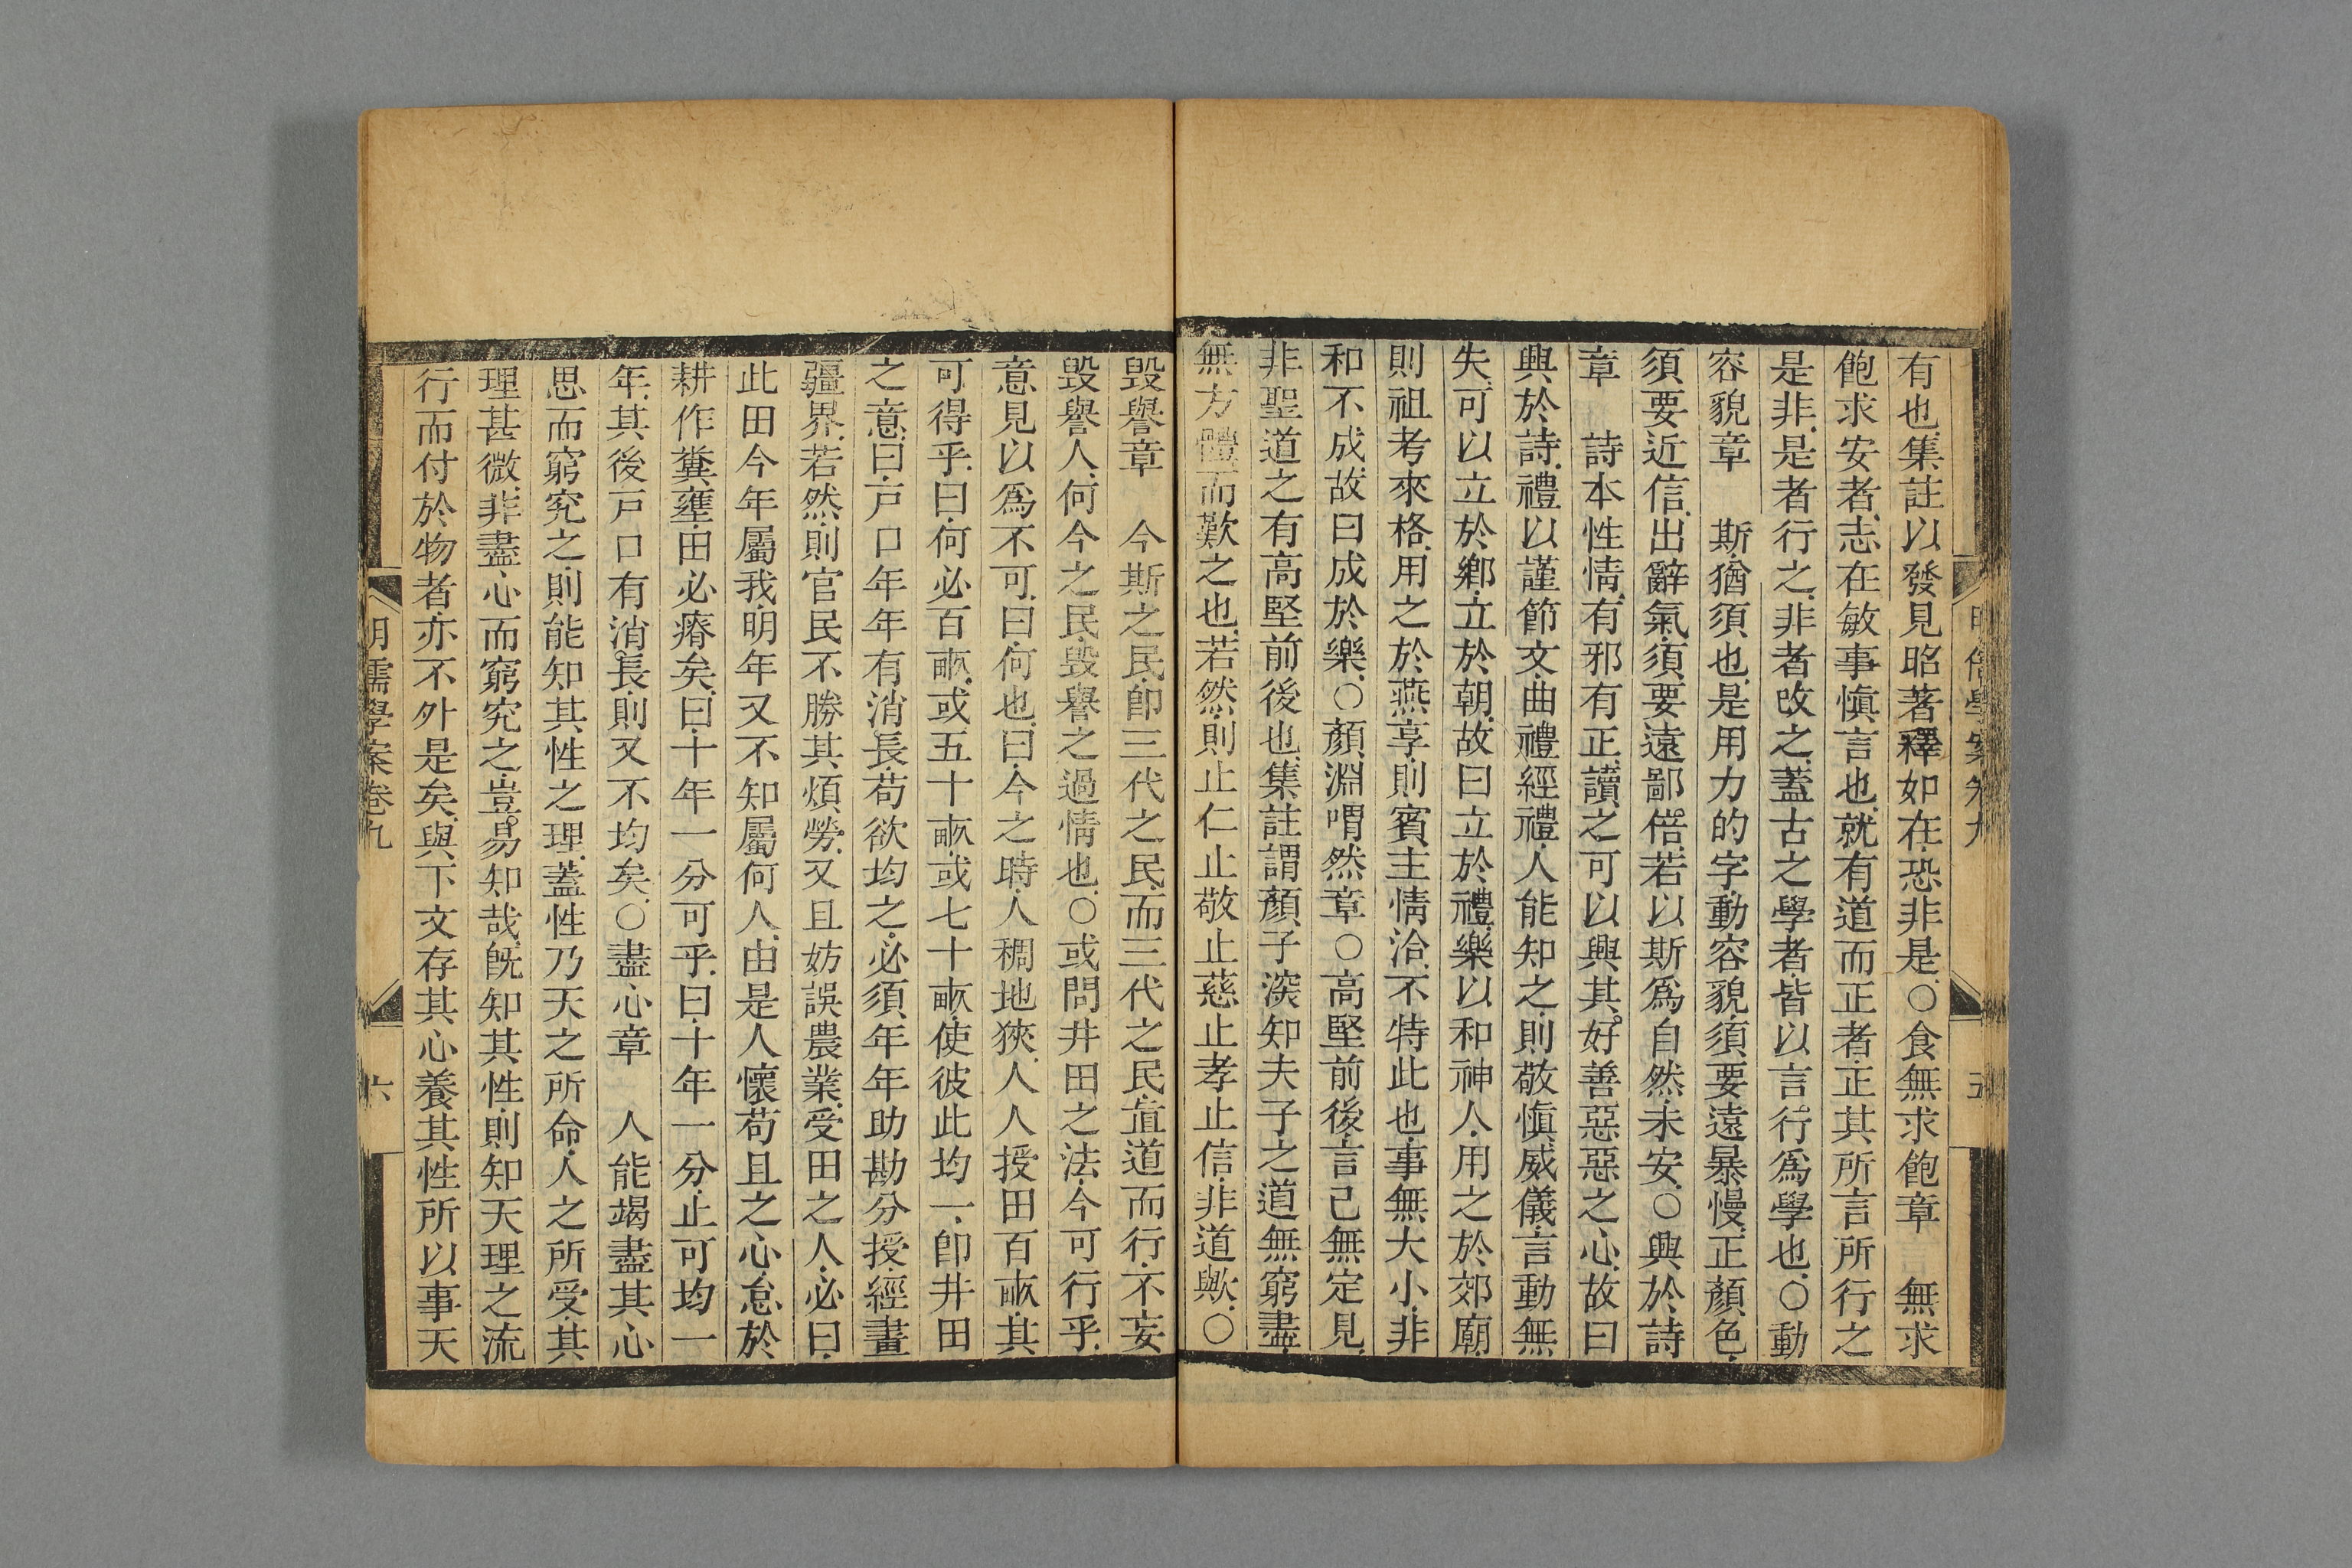 有也集註以發見昭著釋如在恐非是○食無求飽章　無求
飽求安者志在敏事慎言也就有道而正者正其所言所行之
是非是者行之非者改之蓋古之學者皆以言行爲學也○動
容貌章　斯猶須也是用力的字動容貌須要遠暴慢正顏色
須要近信出辭氣須要遠鄙倍若以斯爲自然未安○興於詩
章　詩本性情有邪有正讀之可以興其好善惡惡之心故曰
興於詩禮以謹節文曲禮經禮人能知之則敬慎威儀言動無
失可以立於鄉立於朝故曰立於禮樂以和神人用之於郊廟
則祖考來格用之於燕享則賓主情洽不特此也事無大小非
和不成故曰成於樂○顏淵喟然章　○高堅前後言己無定見
非聖道之有高堅前後也集註謂顏子深知夫子之道無窮盡
無方體而歎之也若然則止仁止敬止慈止孝止信非道歟○
毀譽章　今斯之民卽三代之民而三代之民直道而行不妄
毀譽人何今之民毀譽之過情也○或問井田之法今可行乎
意見以爲不可曰何也曰今之時人稠地狹人人授田百畝其
可得乎曰何必百畝或五十畝或七十畝使彼此均一卽井田
之意曰戸口年年有消長苟欲均之必須年年助勘分授經畫
疆界若然則官民不勝其煩勞又且妨誤農業受田之人必曰
此田今年屬我明年又不知屬何人由是人懷苟且之心怠於
耕作糞壅田必瘠矣曰十年一分可乎曰十年一分止可均一
年其後戸口有消長則又不均矣○盡心章　人能竭盡其心
思而窮究之則能知其性之理蓋性乃天之所命人之所受其
理甚微非盡心而窮究之豈易知哉旣知其性則知天理之流
行而付於物者亦不外是矣與下文存其心養其性所以事天
明儒學案卷九
六